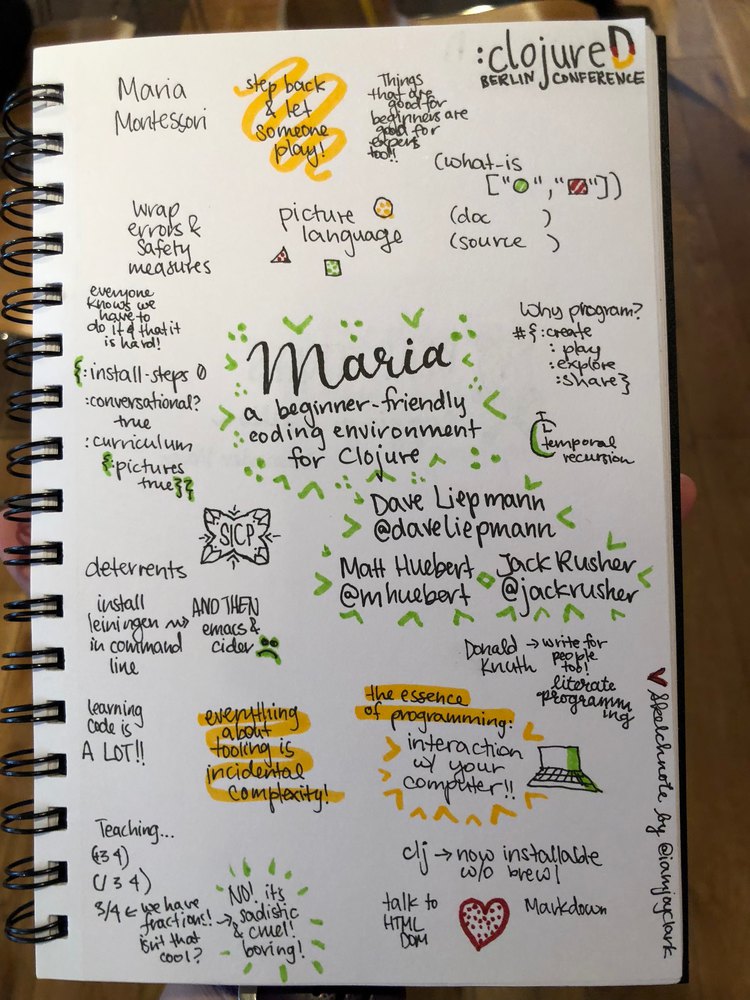 :clojureD
BERLIN CONFERENCE
Maria
Montessori
step back
& let
someone
play!
Things
that are
good for
beginners are
good for
experts
too!!
(what-is
["●","■"])
(doc )
(source )
wrap
errors &
safety
measures
picture
language
everyone
knows we
have to
do it & that it
is hard!
{:install-steps 0
:conversational?
true
:curriculum
{:pictures
true}}
Maria
a beginner-friendly
coding environment
for Clojure
Why program?
#{:create
:play
:explore
:share}
temporal
recursion
Dave Liepmann
@daveliepmann
Matt Huebert
@mhuebert
Jack Rusher
@jackrusher
SICP
deterrents
install
leiningen
in command
line
AND THEN
emacs &
cider
Donald
Knuth
→ write for
people
too!
literate
programm
ing
learning
code is
A LOT!!
everything
about
tooling is
incidental
complexity!
the essence
of programming:
interaction
w/ your
computer!!
Teaching...
(+3 4)
(/ 3 4)
3/4 ← we have
fractions!
isn't that
cool?
→ NO! its
sadistic
& cruel!
boring!
clj → now installable
w/o brew!
talk to
HTML
DOM
Markdown
♥ Sketchnote by @iamjoyclark